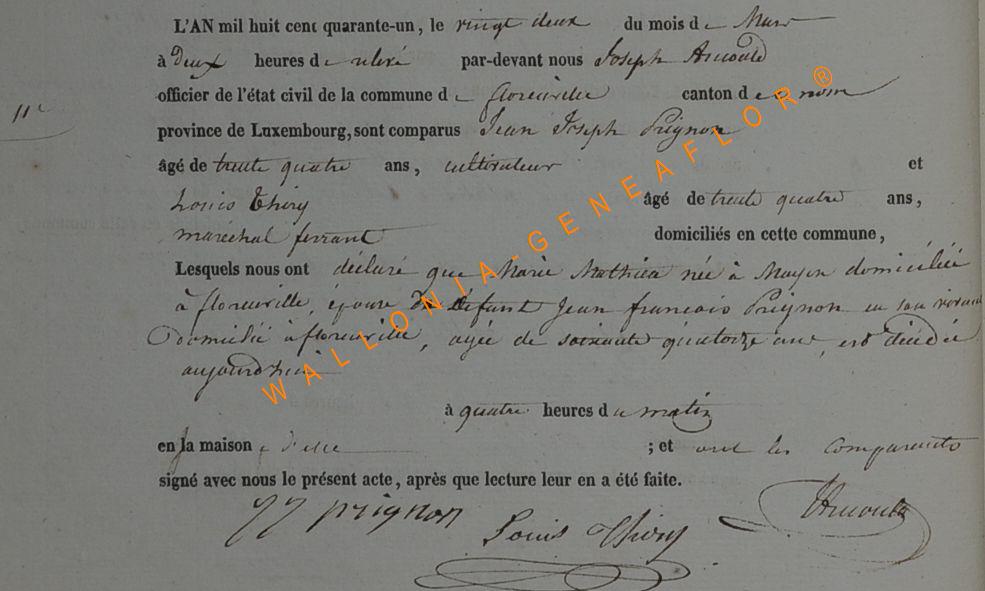 L'AN mil huit cent quarante-un, le vingt deux du mois de Mars
à deux heures de relevé par-devant nous Joseph Arnould
11e
officier de l'état civil de la commune de florenville canton de ce nom
province de Luxembourg, sont comparus Jean Joseph Prignon
âgé de trente quatre ans, cultivateur et
Louis Thiry âgé de trente quatre ans,
maréchal ferrant domiciliés en cette commune,
Lesquels nous ont déclaré que Marie Mathieu née à Moyen domiciliée
à florenville, épouse de défunt Jean françois Prignon en son vivant
Domicilié à florenville, agée de soixante quatorze ans, est décédée
aujourd'hui
à quatre heures du matin
en la maison d'elle ; et ont les comparants
signé avec nous le présent acte, après que lecture leur en a été faite.
JJ prignon
Louis Thiry
Arnould
WALLONIA-GENEAFLOR®